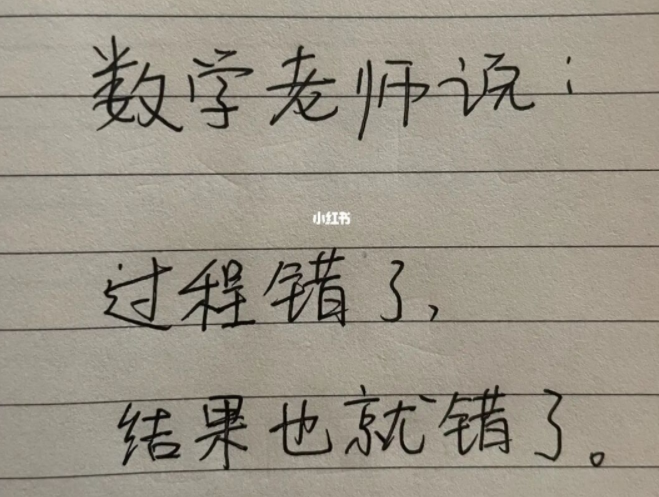 数学老师说：
小红书
过程错了，
结果也就错了。